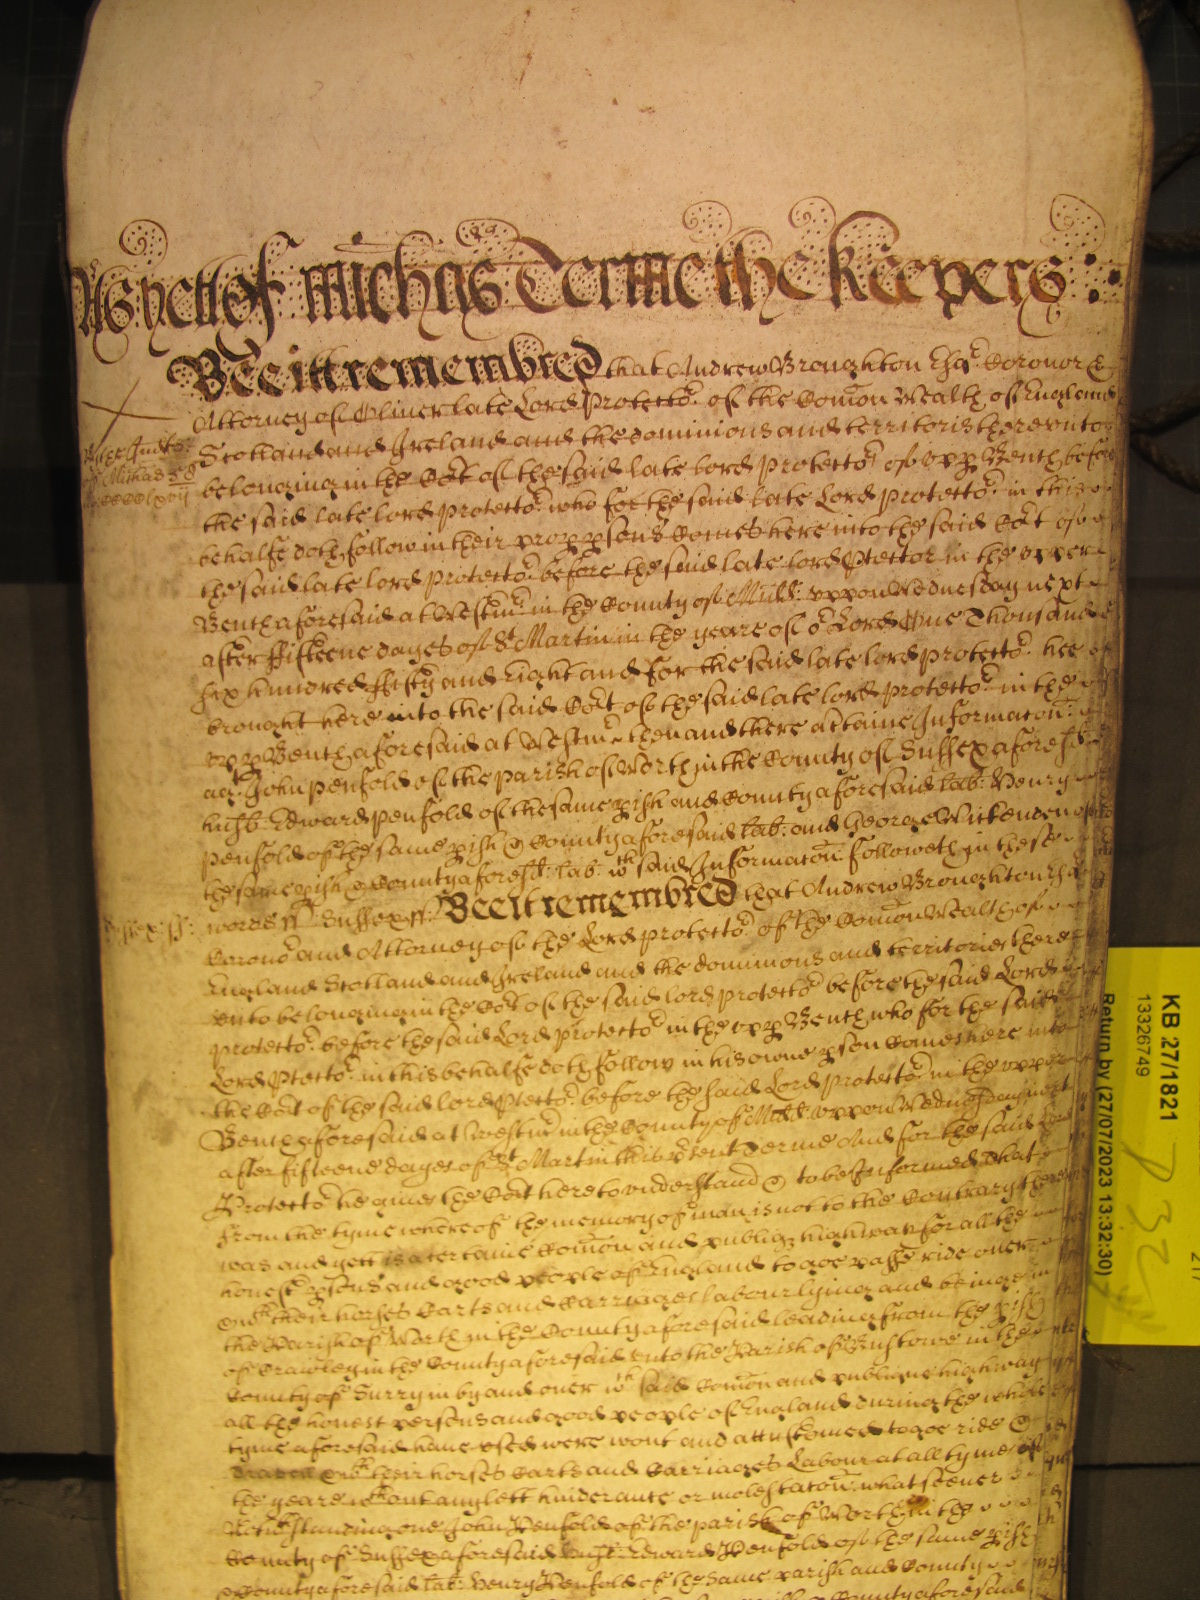 As yett of Michas Terme the Keepers
Bee itt remembred that Andrew Broughton Esqr. Coronor &
Attorney of Oliver late Lord Protector. of the Comon Wealth of England
Scotland and Ireland and the dominions and territories thereunto
belonging in the Cort of the said late lord protector of upp Bench before
the said late lord protector. who for the said late Lord protector. in this
behalfe doth follow in their propp psons Comes here into the said Cort of
the said late lord protector. before the said late lord Ptector in the upper
Bench aforesaid at Westmr. in the County of Midd. uppon Wednesday next
after fifteene dayes of St Martin in the yeare of or Lord One Thousand
six hundred fifty and Eight and for the said late lord protector. hee
brought here into the said Cort of the said late lord protector in the
upp Bench aforesaid at Westmr. then and there a certaine Informacon
agt. John Penfold of the parish of Worth in the County of Sussex aforesd
husb. Edward Penfold of the same pish and County aforesaid lab. Henry
Penfold of the same pish & County aforesaid lab. and George Wickenden of
the same pish & County aforesd. lab. wch said Informacon followeth in these
words ss. Sussex ss. Bee it remembred that Andrew Broughton
Corono and Attorney of the Lord protector. of the Comon Wealth of
England Scotland and Ireland and the dominions and territories there
unto belonging in the Cort of the said lord protector before the said Lord
protector. before the said Lord protector in the upp Bench who for the said
Lord Ptector. in this behalfe doth follow in his owne pson Comes here into
the Cort of the said lord Ptector. before the said Lord protector. in the upper
Bench aforesaid at Westmr in the County of Midd. uppon Wednesday next
after fifteene dayes of St Martin this psent Terme And for the said Lord
Protector he gives the Cort here to understand & to be Informed That
from the tyme whereof the memory of man is not to the Contrary there
was and yett is a certaine Comon and publiq highway for all the
honest psons and good people of England to goe passe ride over
wth their horses Carts and Carriages labour lying and being in
the Parish of Worth in the County aforesaid leading from the pish
of Crawley in the County aforesaid unto the Parish of Burstowe in the
County of Surry in by and over wch said Comon and publique highway
all the honest persons and good people of England during the whole
tyme aforesaid have used were wont and accustomed to goe ride &
travell wth their horses Carts and Carriages Labour at all tymes of
the yeare wthout any lett hinderance or molestacon whatsoever
Notwithstanding one John Penfold of the parish of Worth in the
County of Sussex aforesaid husb. Edward Penfold of the same pish
& County aforesaid lab. Henry Penfold of the same parish and County
County aforesaid
of Michas 58
Sussex ss.
KB 27/1821
13326749
Return by (27/07/2023 13:32:30)